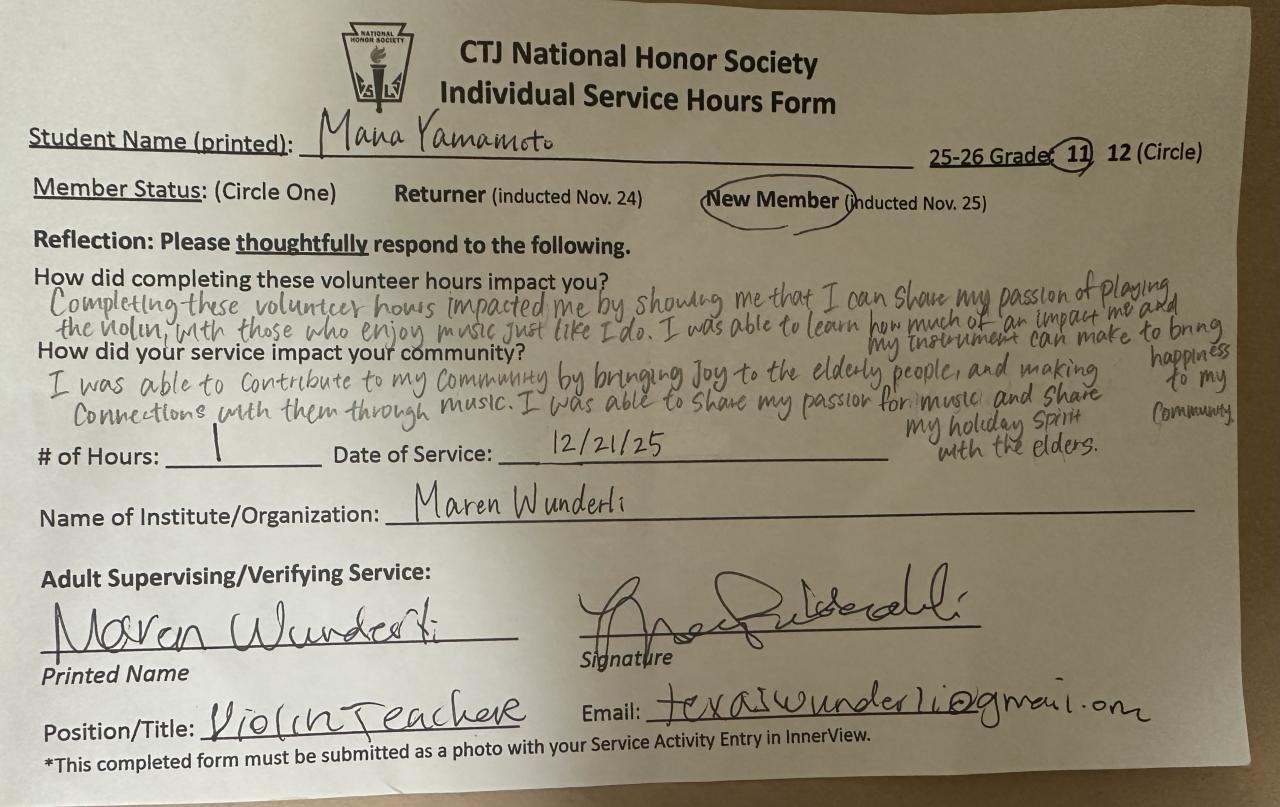 NATIONAL
HONOR SOCIETY
CTJ National Honor Society
Individual Service Hours Form
Student Name (printed): Mana Yamamoto
25-26 Grade: 11 12 (Circle)
Member Status: (Circle One) Returner (inducted Nov. 24) New Member (inducted Nov. 25)
Reflection: Please thoughtfully respond to the following.
How did completing these volunteer hours impact you?
Completing these volunteer hours impacted me by showing me that I can share my passion of playing
the violin, with those who enjoy music just like I do. I was able to learn how much of an impact me and
my instrument can make to bring
happiness
to my
community.
How did your service impact your community?
I was able to contribute to my community by bringing joy to the elderly people, and making
connections with them through music. I was able to share my passion for music and share
my holiday spirit
with the elders.
# of Hours: 1 Date of Service: 12/21/25
Name of Institute/Organization: Maren Wunderli
Adult Supervising/Verifying Service:
Maren Wunderli
Printed Name Signature
Position/Title: Violin Teacher Email: texaswunderli@gmail.om
*This completed form must be submitted as a photo with your Service Activity Entry in InnerView.